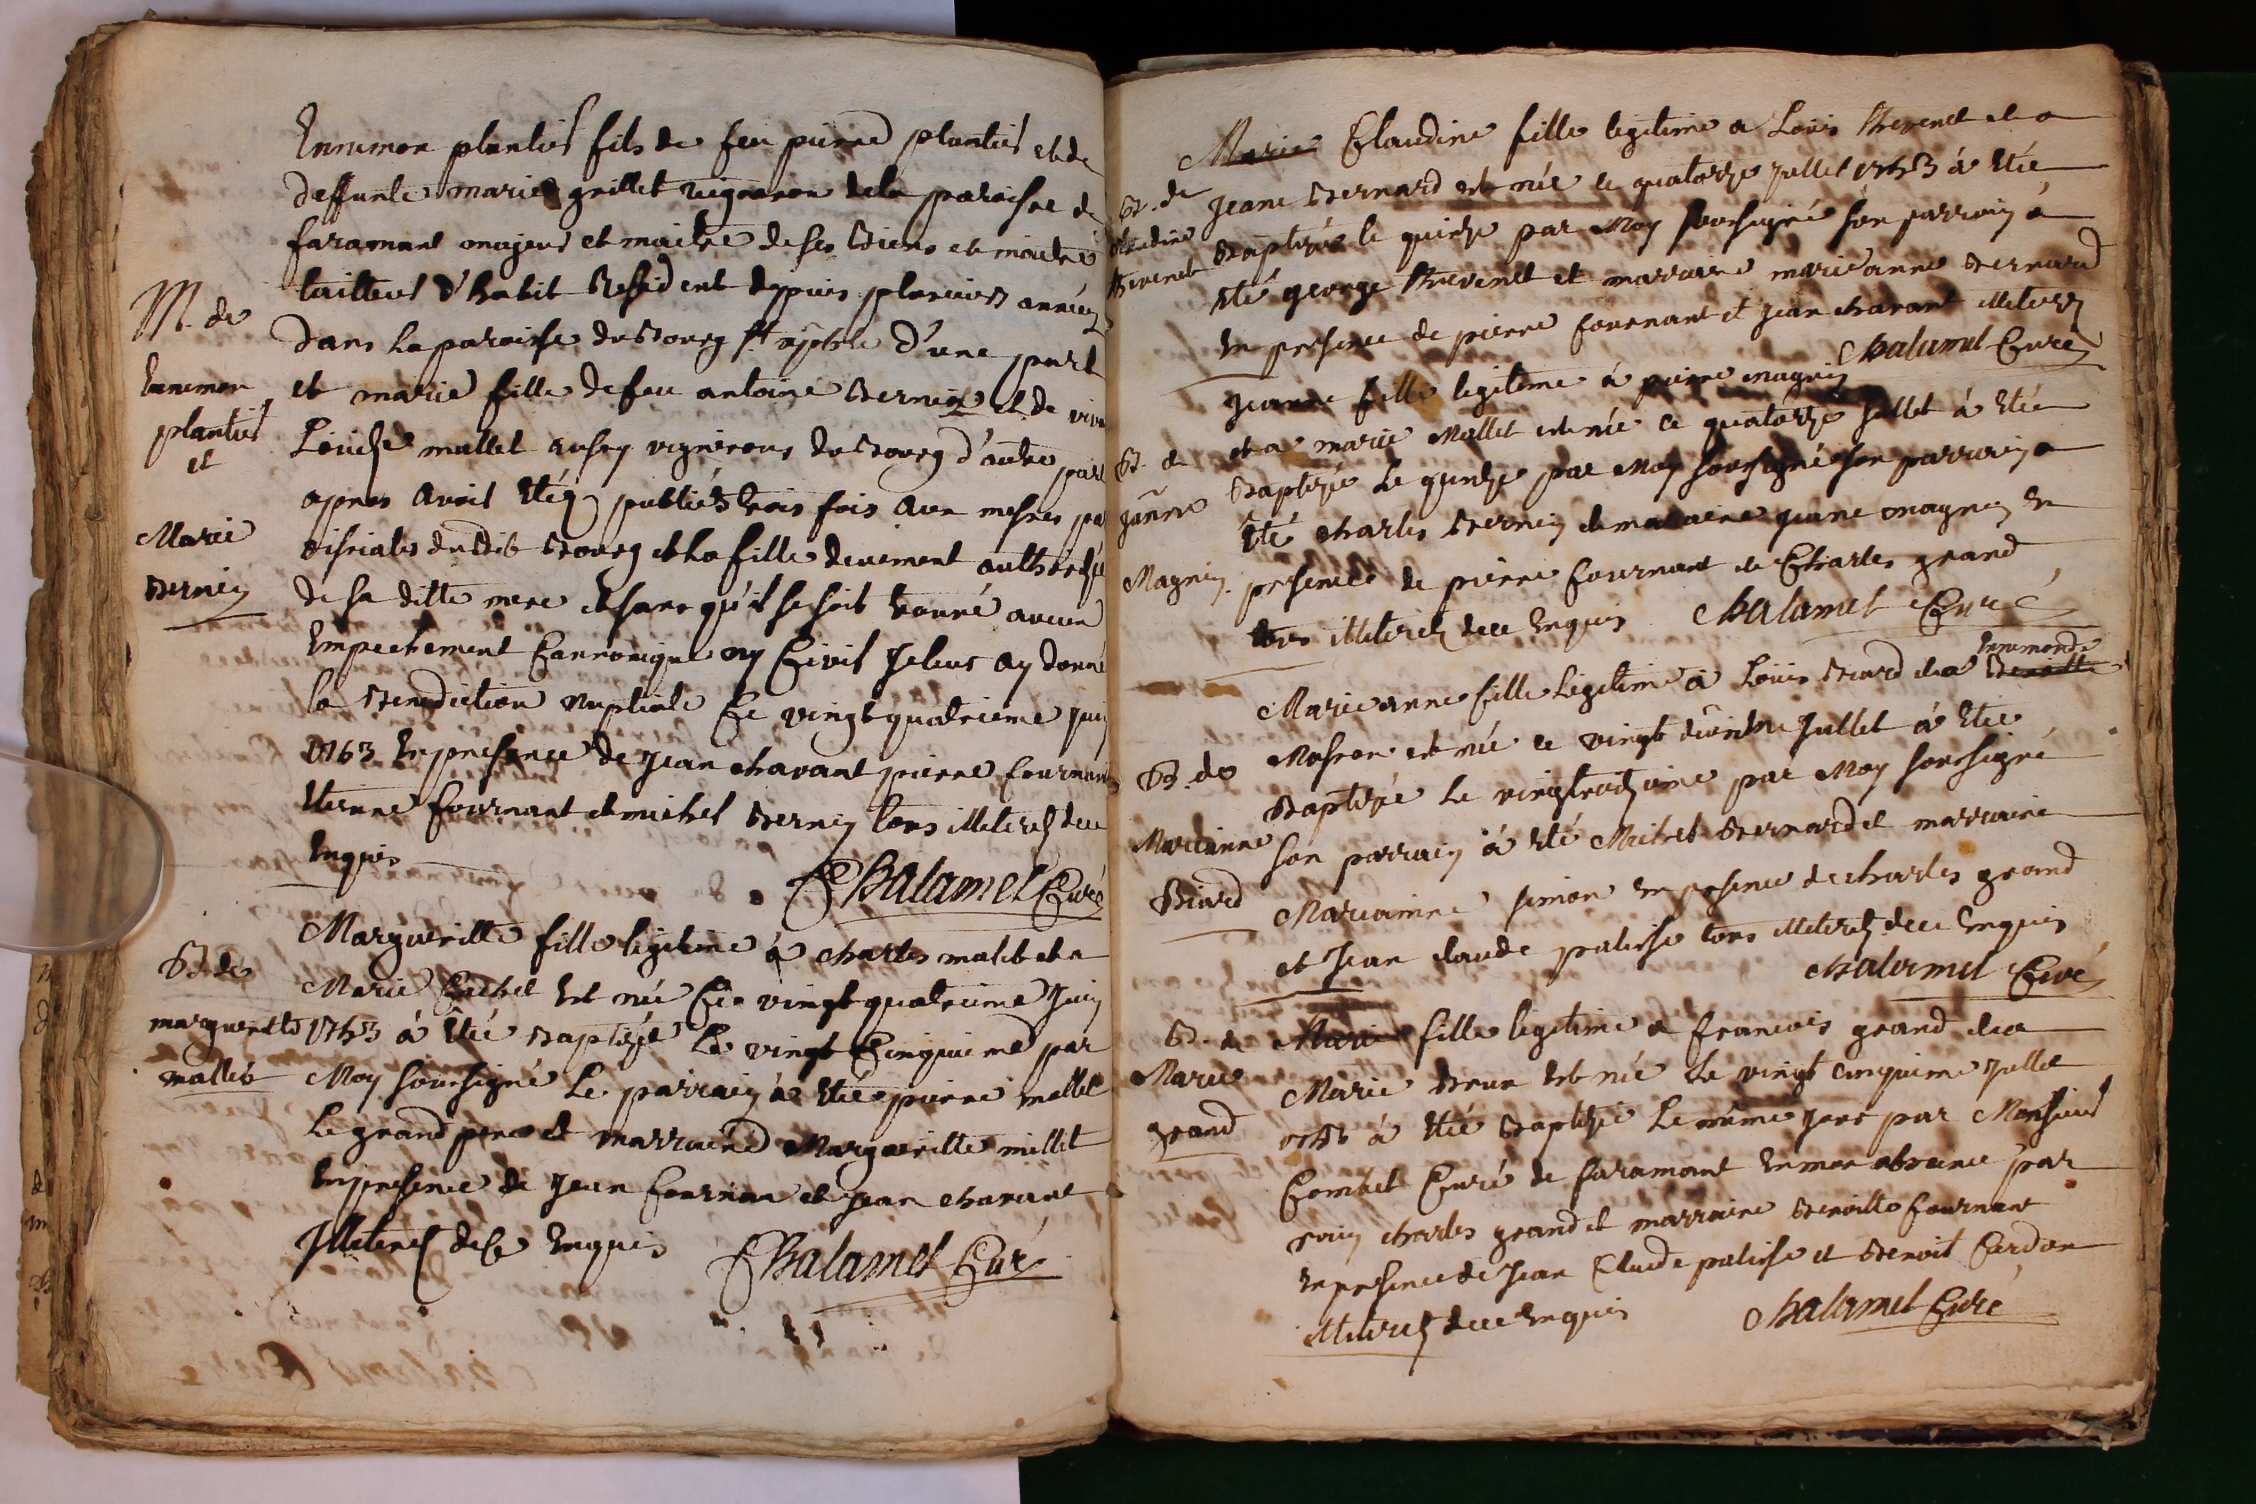 M. de
Ennemon
plantier
et
Marie
Bernin
Ennemon plantier fils de feu pierre plantier et de
deffunte marie grillet vigneron de la paroisse de
faramant majeur et maitre de ses Biens et maitre
tailleur d'habit Resident depuis plusieurs années
dans la paroisse du Bourg st christophle d'une part
et marie fille de feu antoine Bernin et de vivante
Louise mallet aussy vignerons du Bourg d'autre part
apres avoir été publiés trois fois aux messes pa
oissiales dudit Bourg et la fille deuement authorisée
de sa ditte mere et sans qu'il se soit trouvé aucun
Empechement Cannonique ny Civil Je leur ay donné
la Benediction nuptiale Ce vingt quatrieme juin
1763 En presence de jean chavant pierre fournant
Etienne fournant et michel Bernin tous illiterez de ce
Enquis
Chalamel Curé
B. de
margueritte
mallet
Margueritte fille legitime à charles malet et a
Marie Cachet Est née Ce vingt quatrieme Juin
1763 à été Baptisée Le vingt Cinquieme par
Moy soussigné Le parrain à Eté pierre mallet
Le grand pere et marraine Margueritte millet
En presence de Jean fournan et Jean chavant
Illiterez de Ce Enquis
Chalamel Curé
B. de
claudine
thevenet
Marie Claudine fille legitime a Louis thevenet et a
Jeane Bernard est née le quatorze juillet 1763 à été
Baptisée le quinze par Moy soussigné son parrain a
Eté george thevenet et marraine marie anne Bernard
En presence de pierre fournant et jean chavant illiterez
Chalamel Curé
B. de
janne
Magnin
Jeanne fille legitime à pierre magnin
et a marie Mallet est née ce quatorze juillet à été
Baptisée Le quinze par Moy soussigné son parrain a
Eté charles Bernin et maraine jeane magnin En
presence de pierre fournant et Charles grand
tous illiterez de ce Enquis
Chalamel Curé
B. de
Marianne
Biard
Ennemonde
Marie anne fille legitime à Louis Biard et a Benoitte
Masson est née ce vingt deuxieme juillet à été
Baptisée Le vingt troizieme par Moy soussigné
son parrain à été Michel Bernard et marraine
Marianne simon En presence de charles grand
et Jean claude palisse tous illiterez de ce Enquis
Chalamel Curé
B. de
Marie
grand
Marie fille legitime a francois grand et a
Marie Brun Est née Le vingt cinquieme juillet
1763 à été Baptisée Le même jour par Monsieur
Combet Curé de faramant En mon absence par
rain charles grand et marraine Benoitte fournant
En presence de Jean Claude palisse et Benoit Cerdon
illiterez de ce Enquis
Chalamel Curé